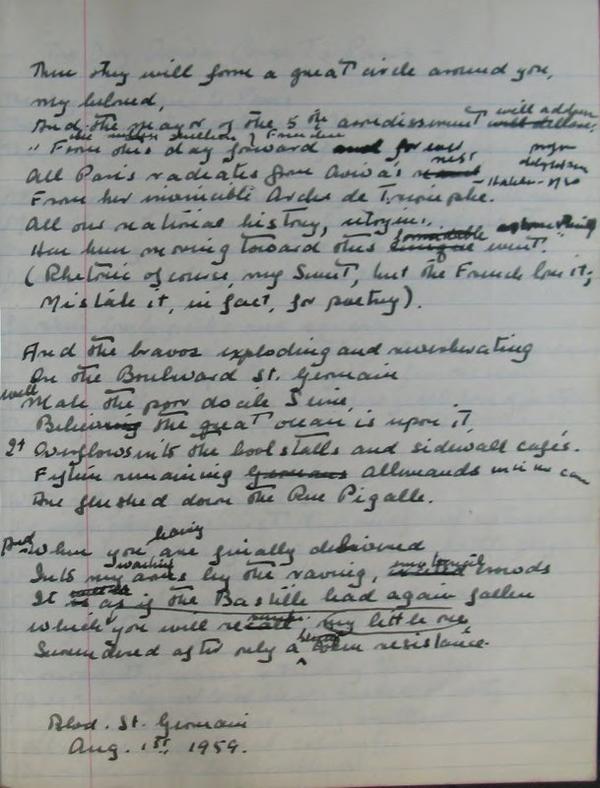 Then they will form a great circle around you,
my beloved,
And the mayor of the 5th arrondissement will address
will declare,
the million Frenchmen
"From this day forward and forever
All Paris radiates from Aviva's
From her invincible Archs de Triomphe.
All our national history, citoyens,
formidable
Has been moving toward this unique event."
(Rhetoric of course, my Sweet, but the French love it;
Mistake it, in fact, for poetry).
And the bravos exploding and reverberating
On the Boulevard St. Germain
will Make the poor docile Seine,
Believing the great ocean is upon it,
It Overflows into the bookstalls and sidewalk cafés.
Fifteen remaining Germans allemands
Are flushed down the Rue Pigalle.
And When you are finally delivered
waiting
Into my arms by the raving, mobs
It is as if the Bastille had again fallen
which you will recall, my little one,
Surrendered after only a resistance.
Blvd. St. Germain
Aug. 1st, 1959.